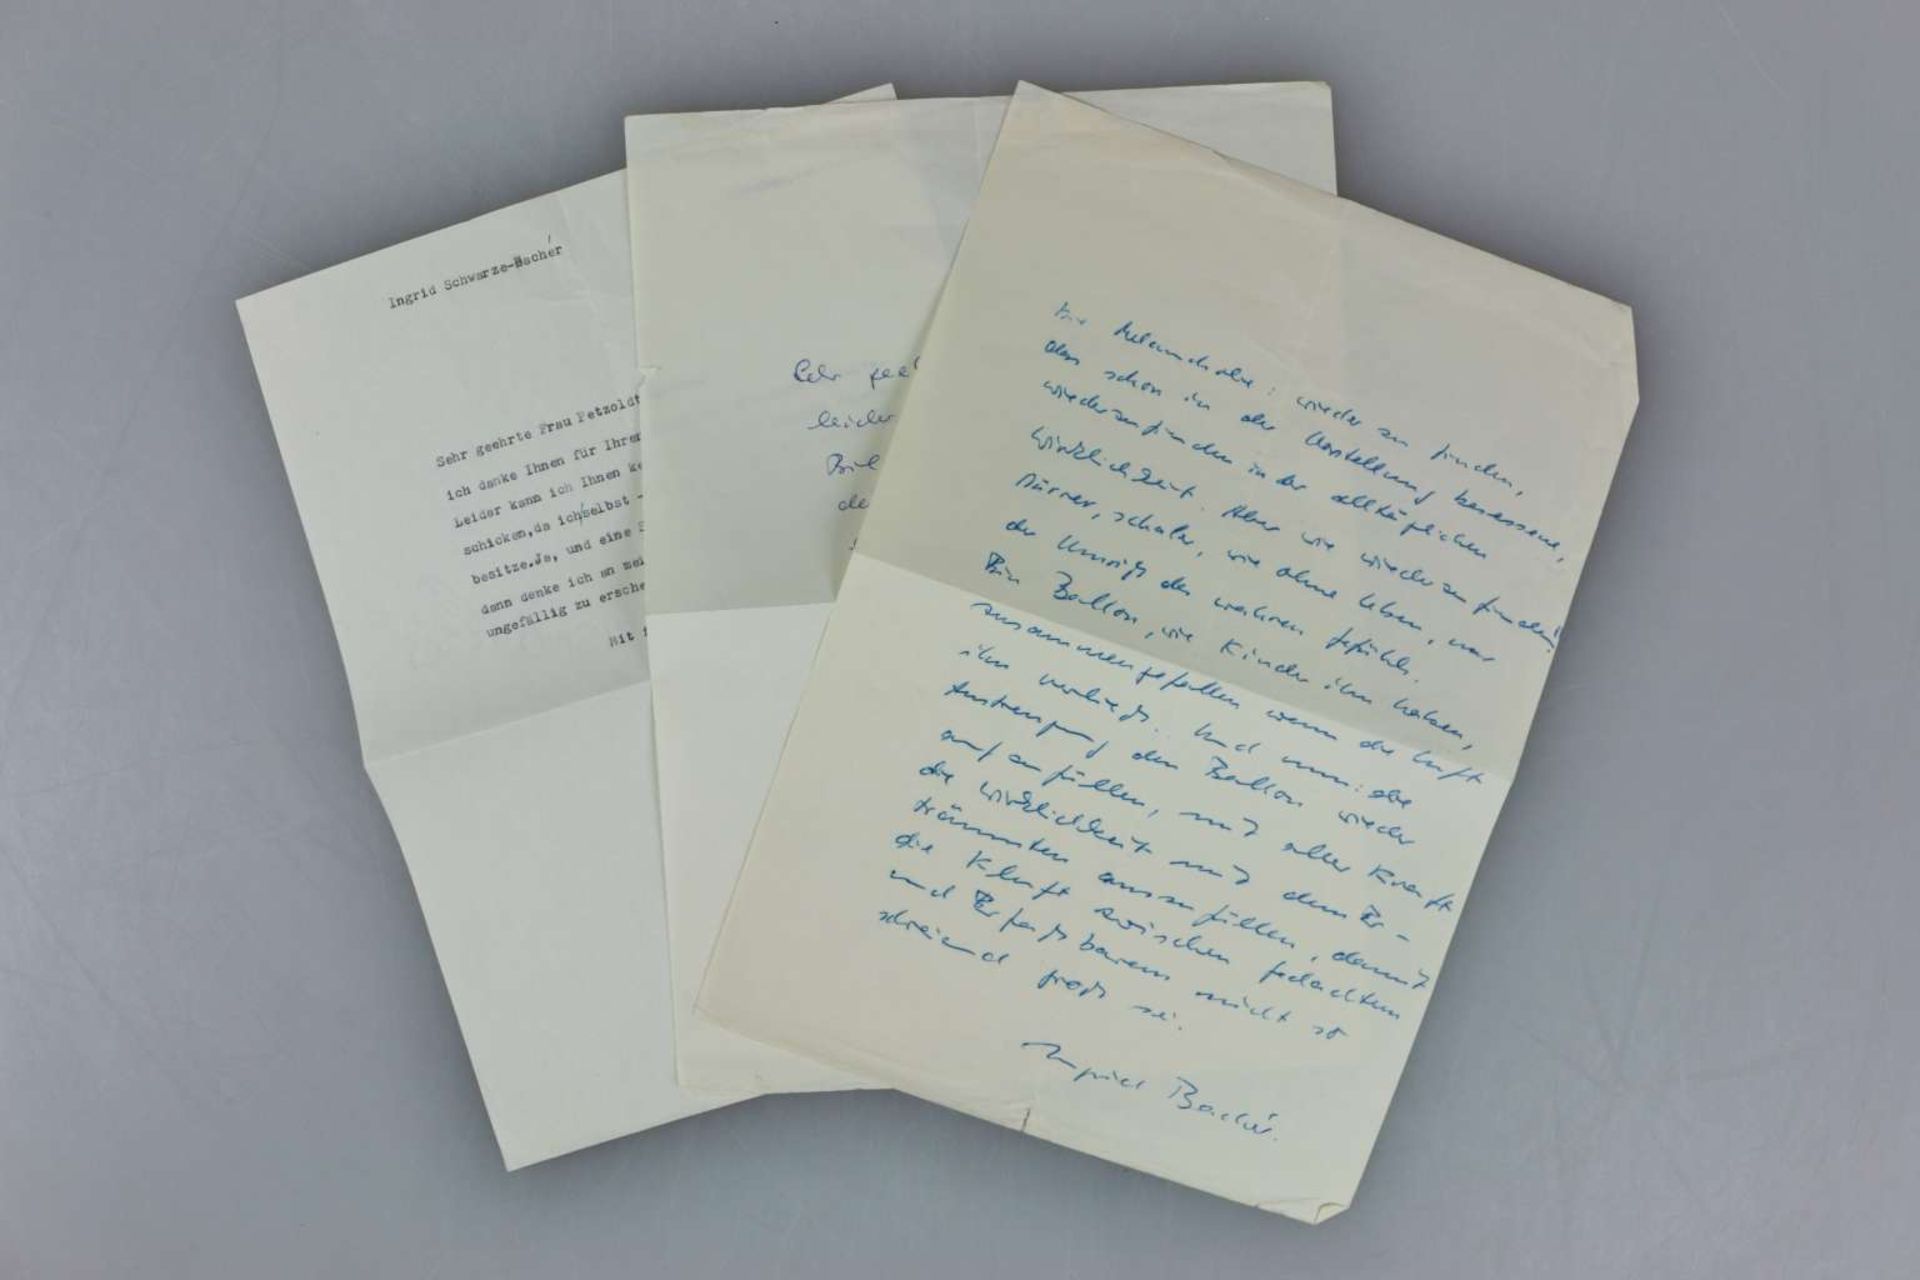 Ingrid Schwarze-Bachér
Sehr geehrte Frau Petzoldt
ich danke Ihnen für Ihren
Leider kann ich Ihnen ke
schicken,da ich selbst -
besitze.Ja, und eine
dann denke ich an mei
ungefällig zu ersche
Mit
Sehr geeh
leider
Bil
de
Die Melancholie: wieder zu finden,
das schon in der Vorstellung besessene,
wiederzufinden in der alltäglichen
Wirklichkeit. Aber wie wiederzufinden!
Dürrer, schaler, wie ohne Leben, nur
der Umriß des wahren Gefühls.
Ein Ballon, wie Kinder ihn haben,
zusammengefallen wenn die Luft
ihn verließ. Und nun: die
Anstrengung den Ballon wieder
aufzufüllen, mit aller Kraft
die Wirklichkeit mit dem Er-
träumten auszufüllen, damit
die Kluft zwischen Gedachtem
und Erfaßbarem nicht so
schreiend groß sei.
Ingrid Bachér.